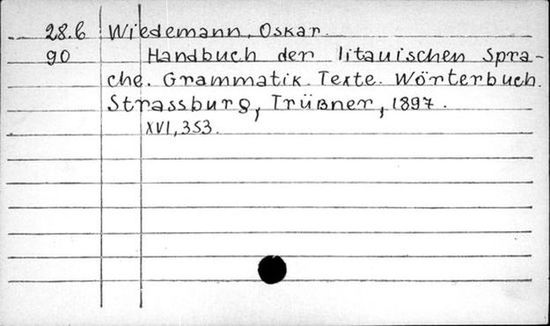 28.6 Wiedemann, Oskar.
90 Handbuch der litauischen Spra-
che. Grammatik. Texte. Wörterbuch.
Strassburg, Trüßner, 1897.
XVI, 353.